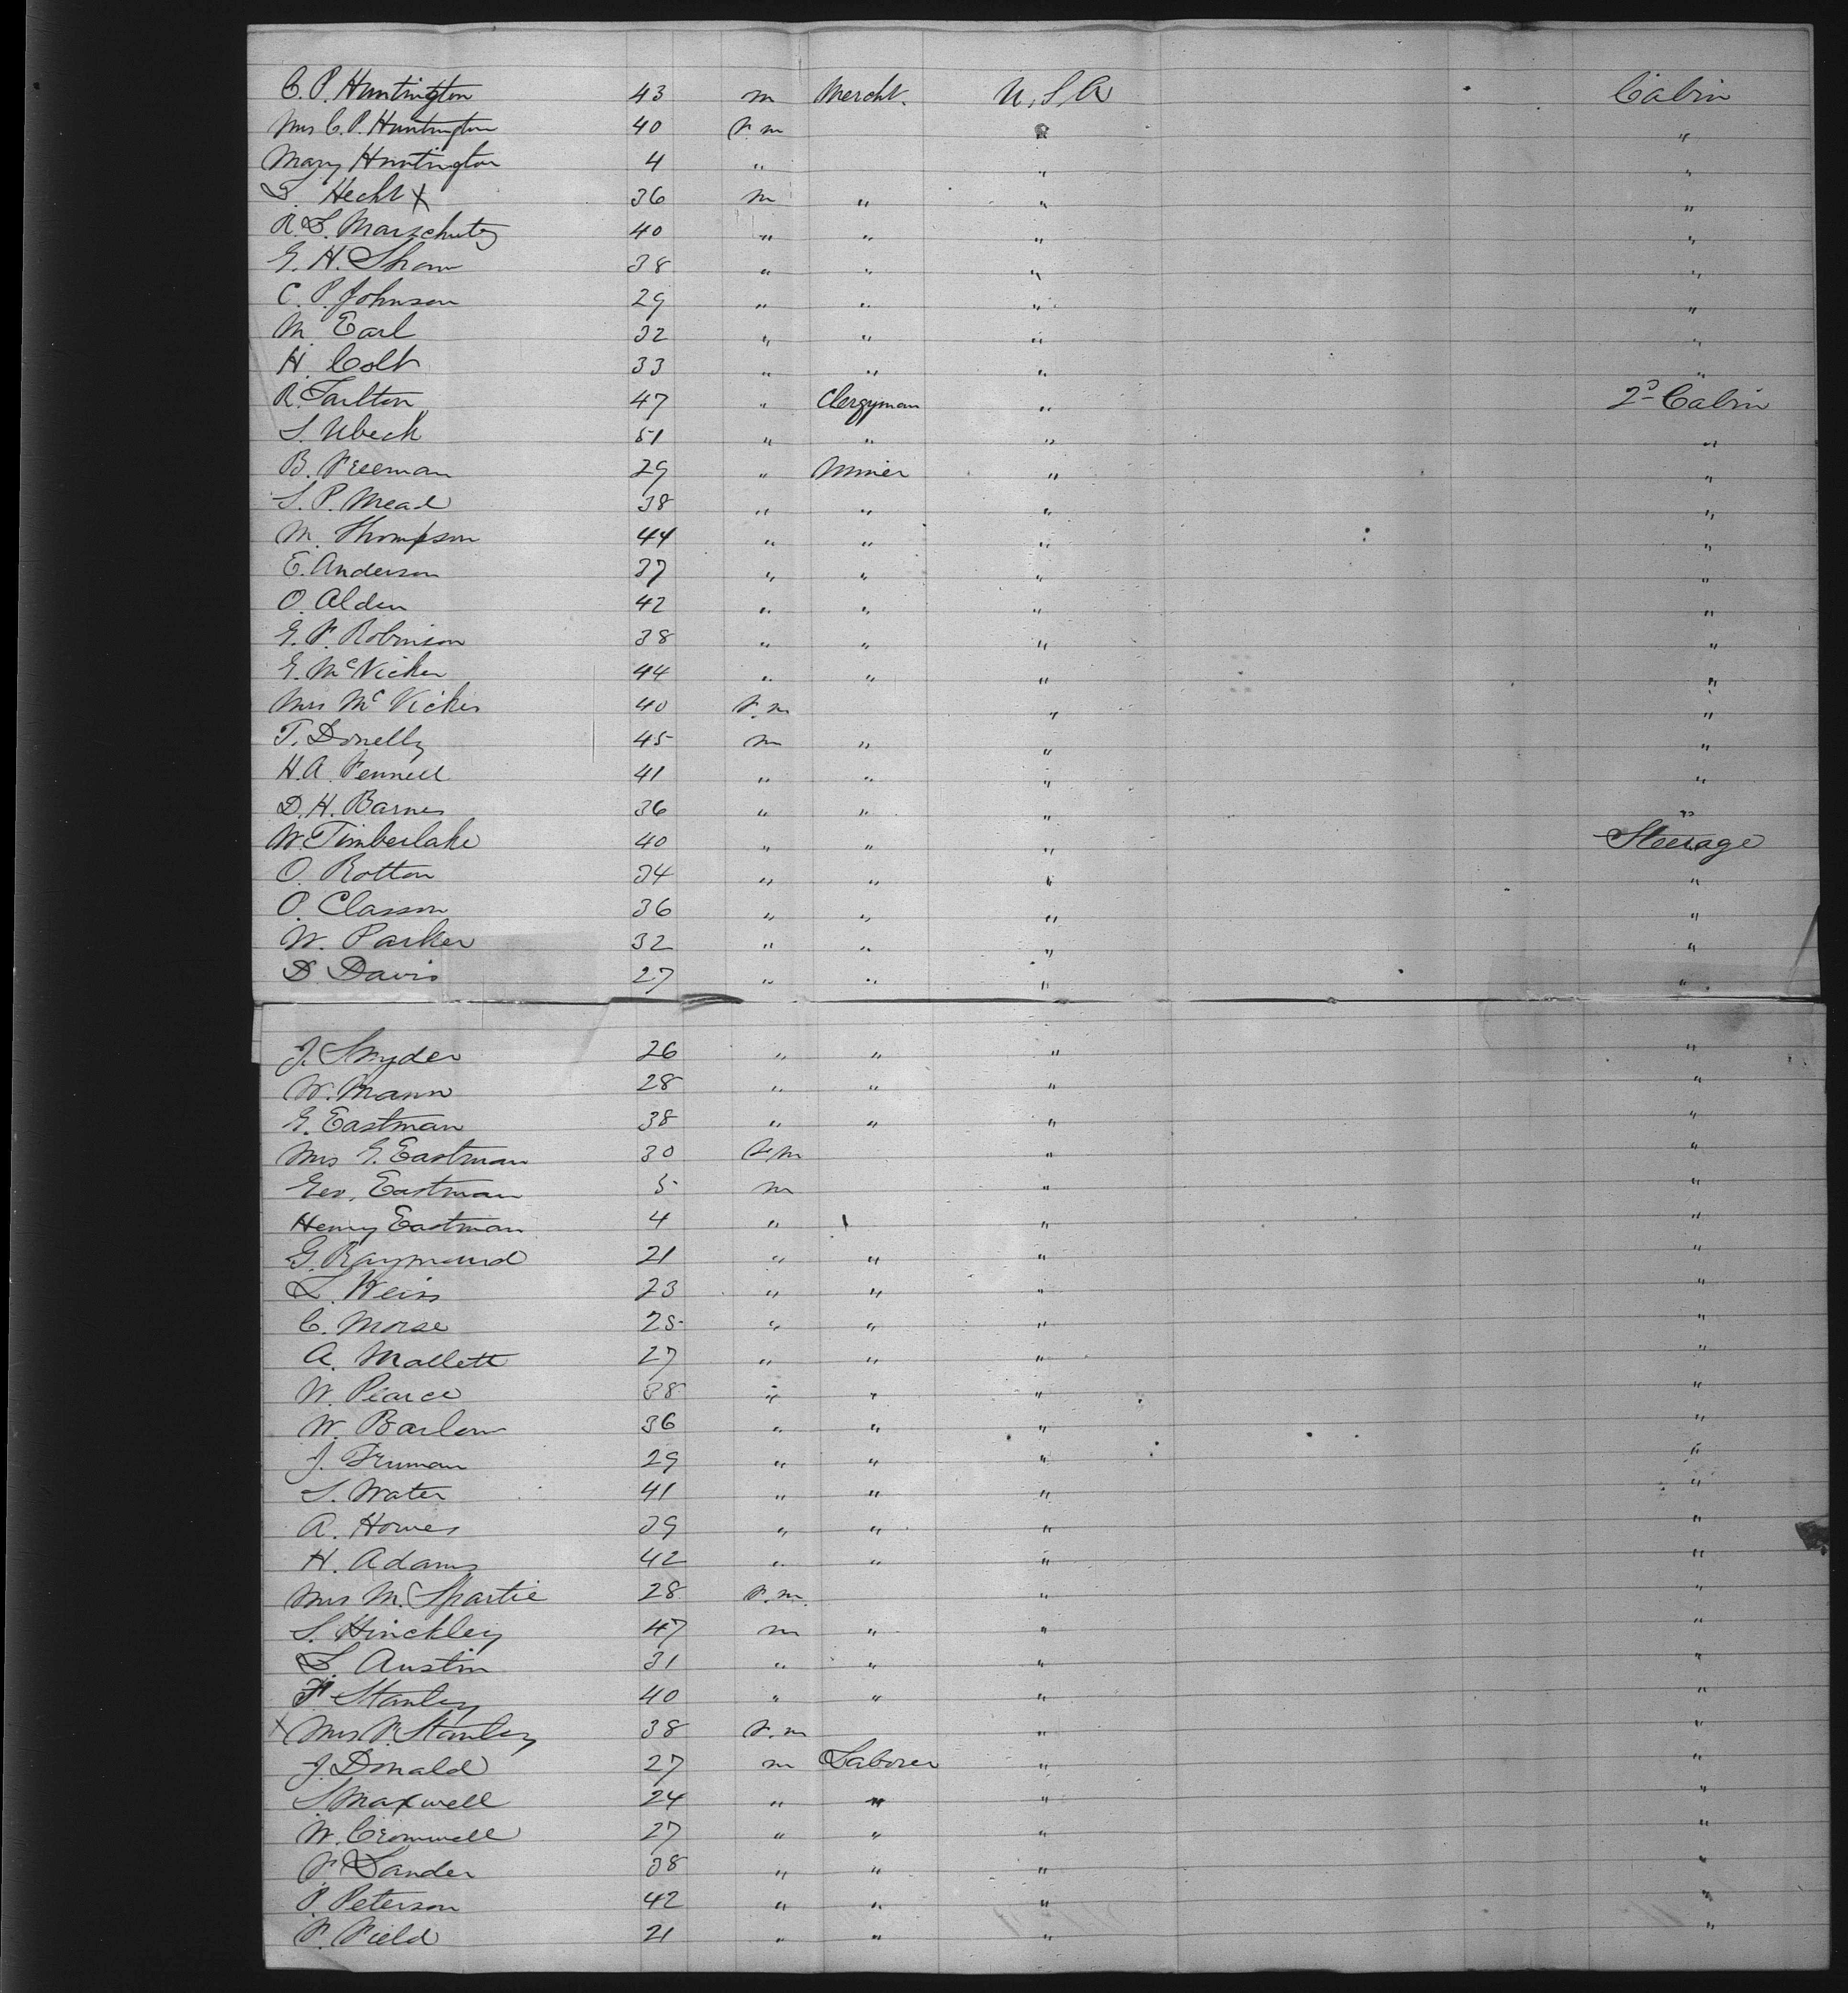 C. P. Huntington 43 m Mercht. U, S, A Cabin
Mrs C. P. Huntington 40 F. m " "
Mary Huntington 4 " " "
S. Hecht x 36 m " " "
R. S. Marschutz 40 " " " "
G. H. Shaw 38 " " " "
C. P. Johnson 29 " " " "
M. Earl 32 " " " "
H. Colt 33 " " " "
R. Tarlton 47 " Clergyman " 2d Cabin
S. Ubeck 51 " " " "
B. Freeman 29 " Miner " "
S. P. Mead 38 " " " "
M. Thompson 44 " " " "
E. Anderson 37 " " " "
O. Alden 42 " " " "
G. F. Robinson 38 " " " "
G. McVicker 44 " " " "
Mrs McVicker 40 F. m " "
T. Donelly 45 m " " "
H. A. Fennell 41 " " " "
D. H. Barnes 36 " " " "
W. Timberlake 40 " " " Steerage
O. Rotton 34 " " " "
P. Classon 36 " " " "
W. Parker 32 " " " "
D. Davis 27 " " " "
J. Snyder 26 " " " "
W. Mann 28 " " " "
G. Eastman 38 " " " "
Mrs G. Eastman 30 F. m " "
Geo. Eastman 5 m " "
Henry Eastman 4 " " "
G. Raymond 21 " " " "
L. Weiss 23 " " " "
C. Morse 25 " " " "
A. Mallett 27 " " " "
W. Pearce 38 " " " "
W. Barlow 36 " " " "
J. Truman 29 " " " "
S. Water 41 " " " "
A. Howes 39 " " " "
H. Adams 42 " " " "
Mrs M. Spartie 28 F. m. " "
S. Hinckley 47 m " " "
S. Austin 31 " " " "
F. Stanley 40 " " " "
x Mrs F. Stanley 38 F. m " "
J. Donald 27 m Laborer " "
S. Maxwell 24 " " " "
W. Cromwell 27 " " " "
F. Sander 38 " " " "
P. Peterson 42 " " " "
F. Field 21 " " " "